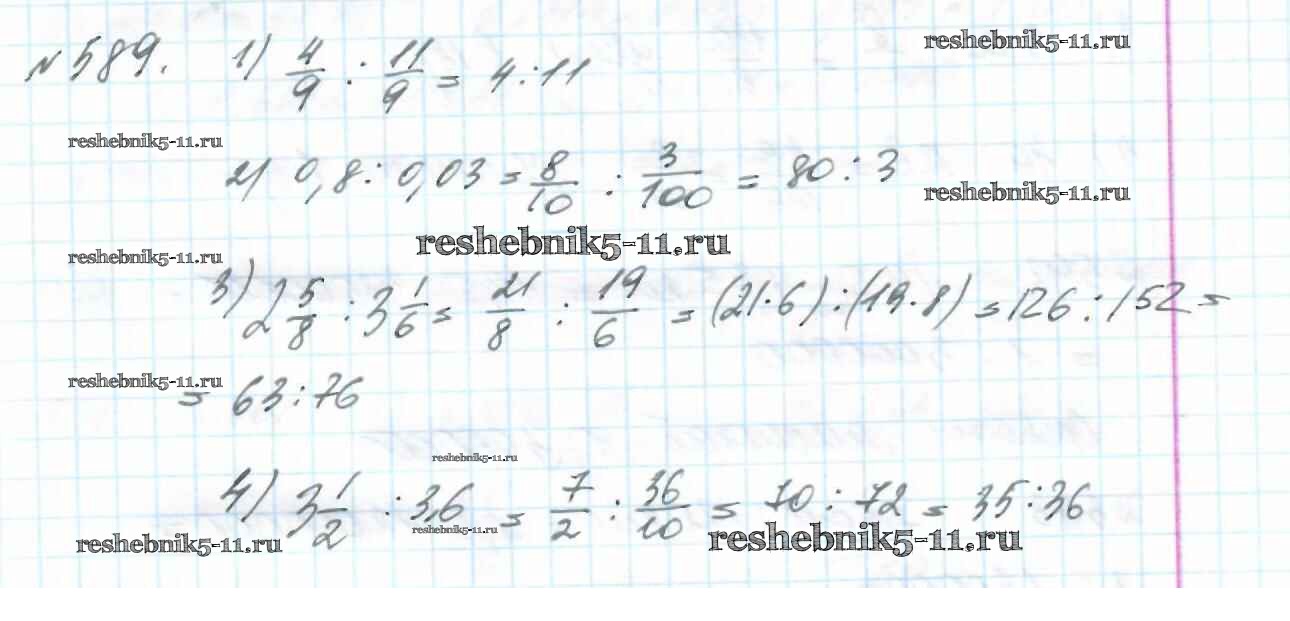 №589. 1) 4/9 : 11/9 = 4:11
reshebnik5-11.ru
reshebnik5-11.ru
2) 0,8 : 0,03 = 8/10 : 3/100 = 80 : 3
reshebnik5-11.ru
reshebnik5-11.ru
reshebnik5-11.ru
3) 2 5/8 : 3 1/6 = 21/8 : 19/6 = (21·6) : (19·8) = 126 : 152 =
reshebnik5-11.ru
= 63:76
reshebnik5-11.ru
4) 3 1/2 : 3,6 = 7/2 : 36/10 = 70 : 72 = 35:36
reshebnik5-11.ru
reshebnik5-11.ru
reshebnik5-11.ru